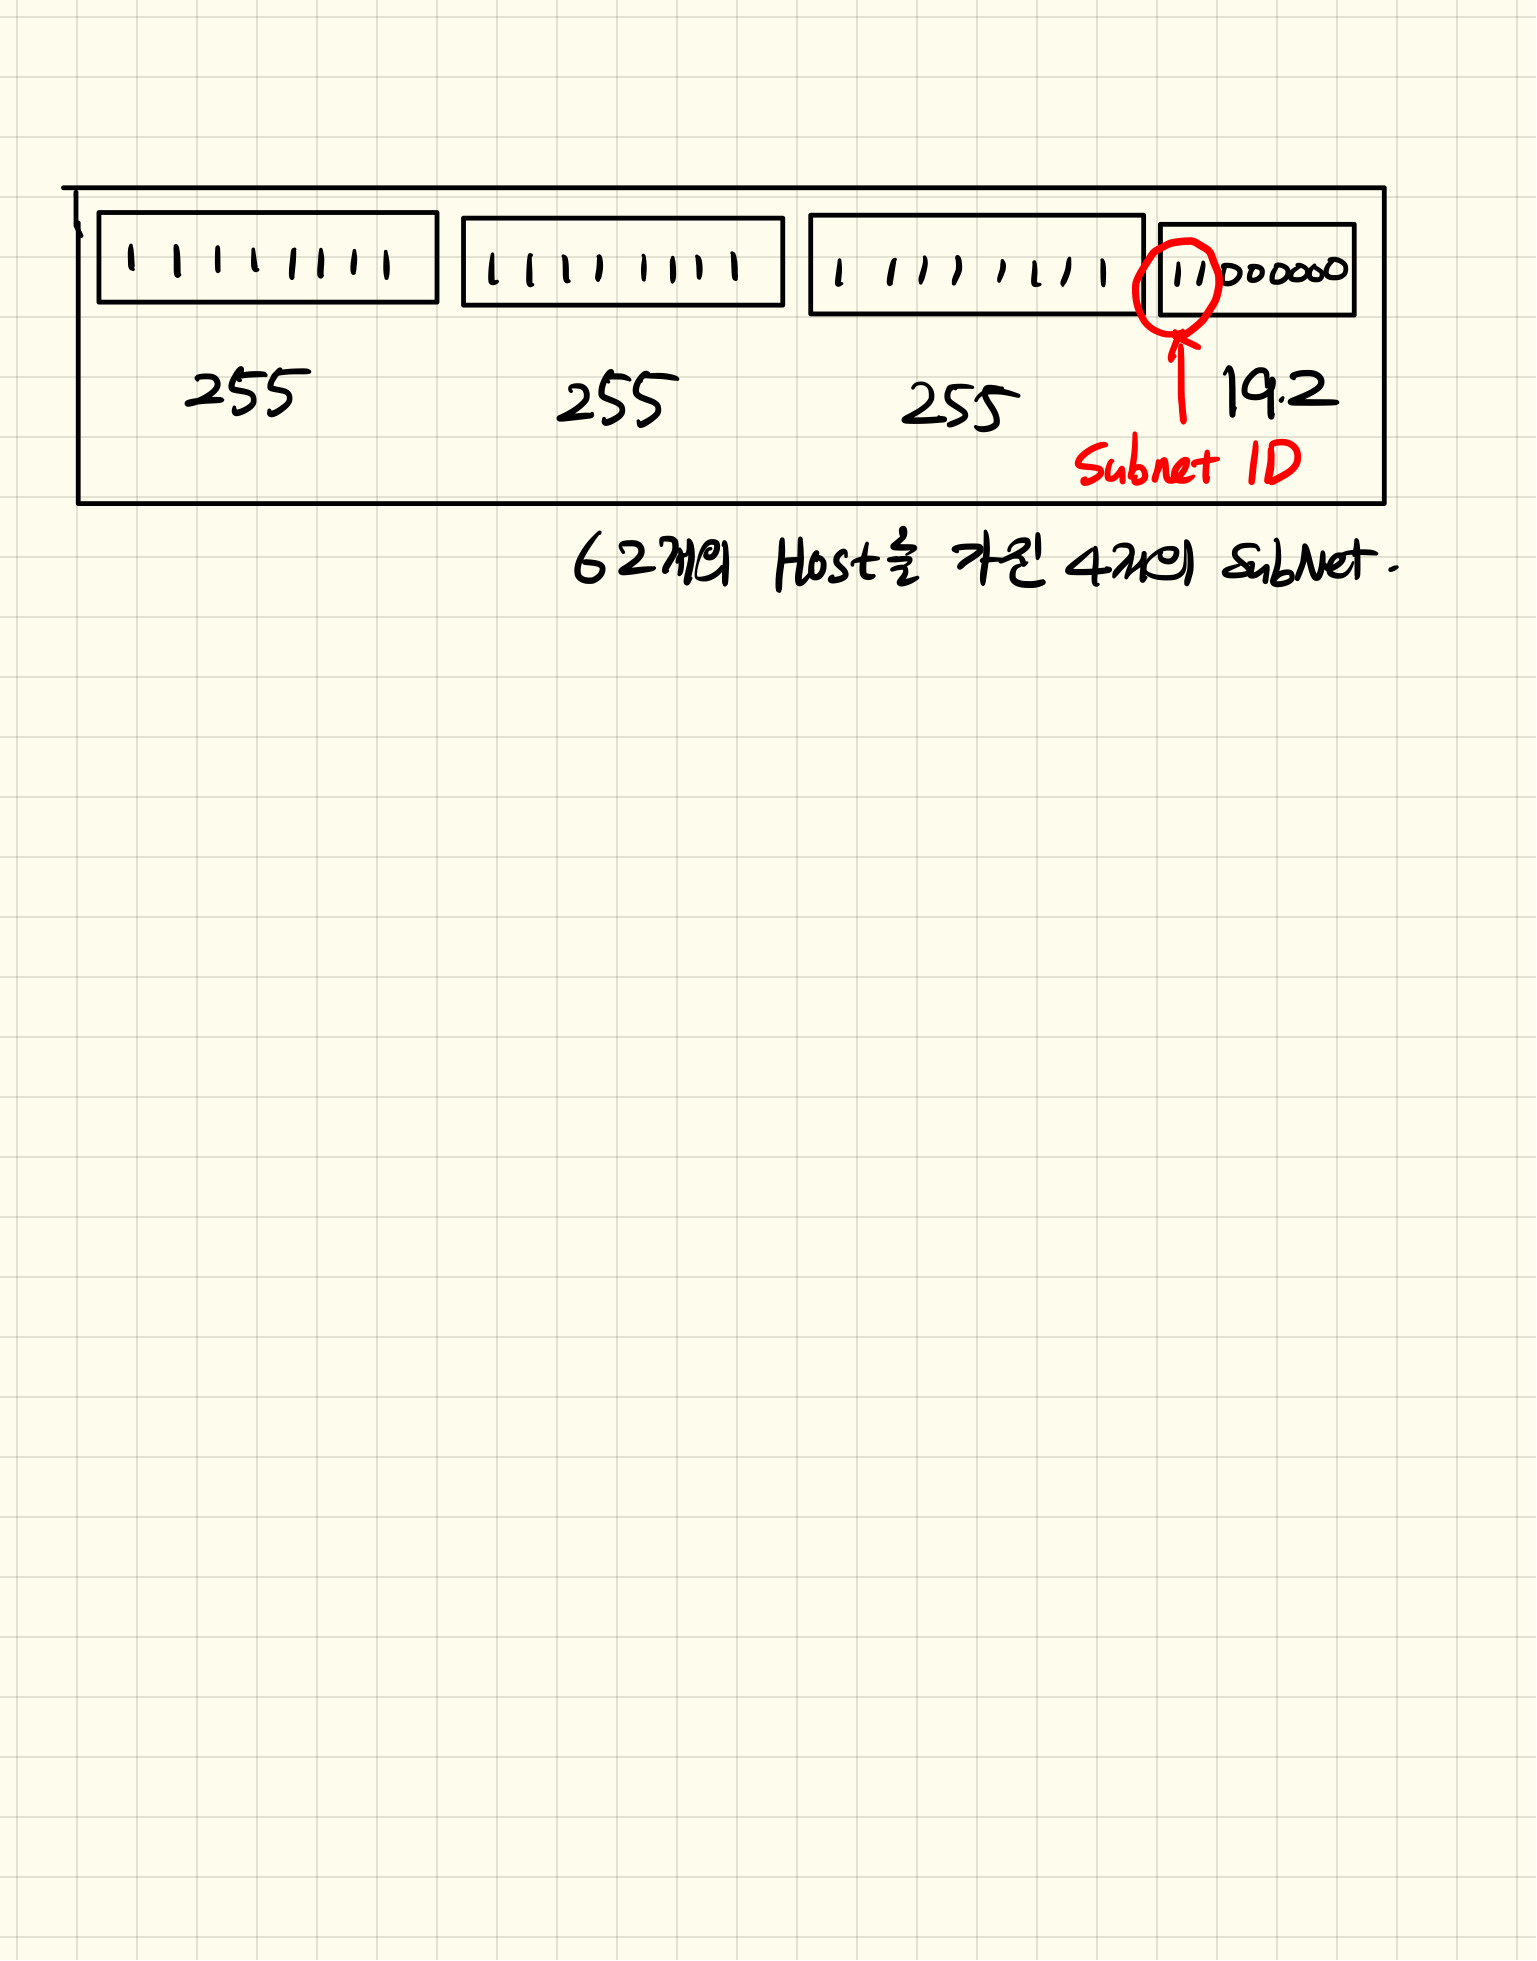 11111111 11111111 11111111 11000000
255 255 255 192
Subnet ID
62개의 Host를 가진 4개의 SubNet.